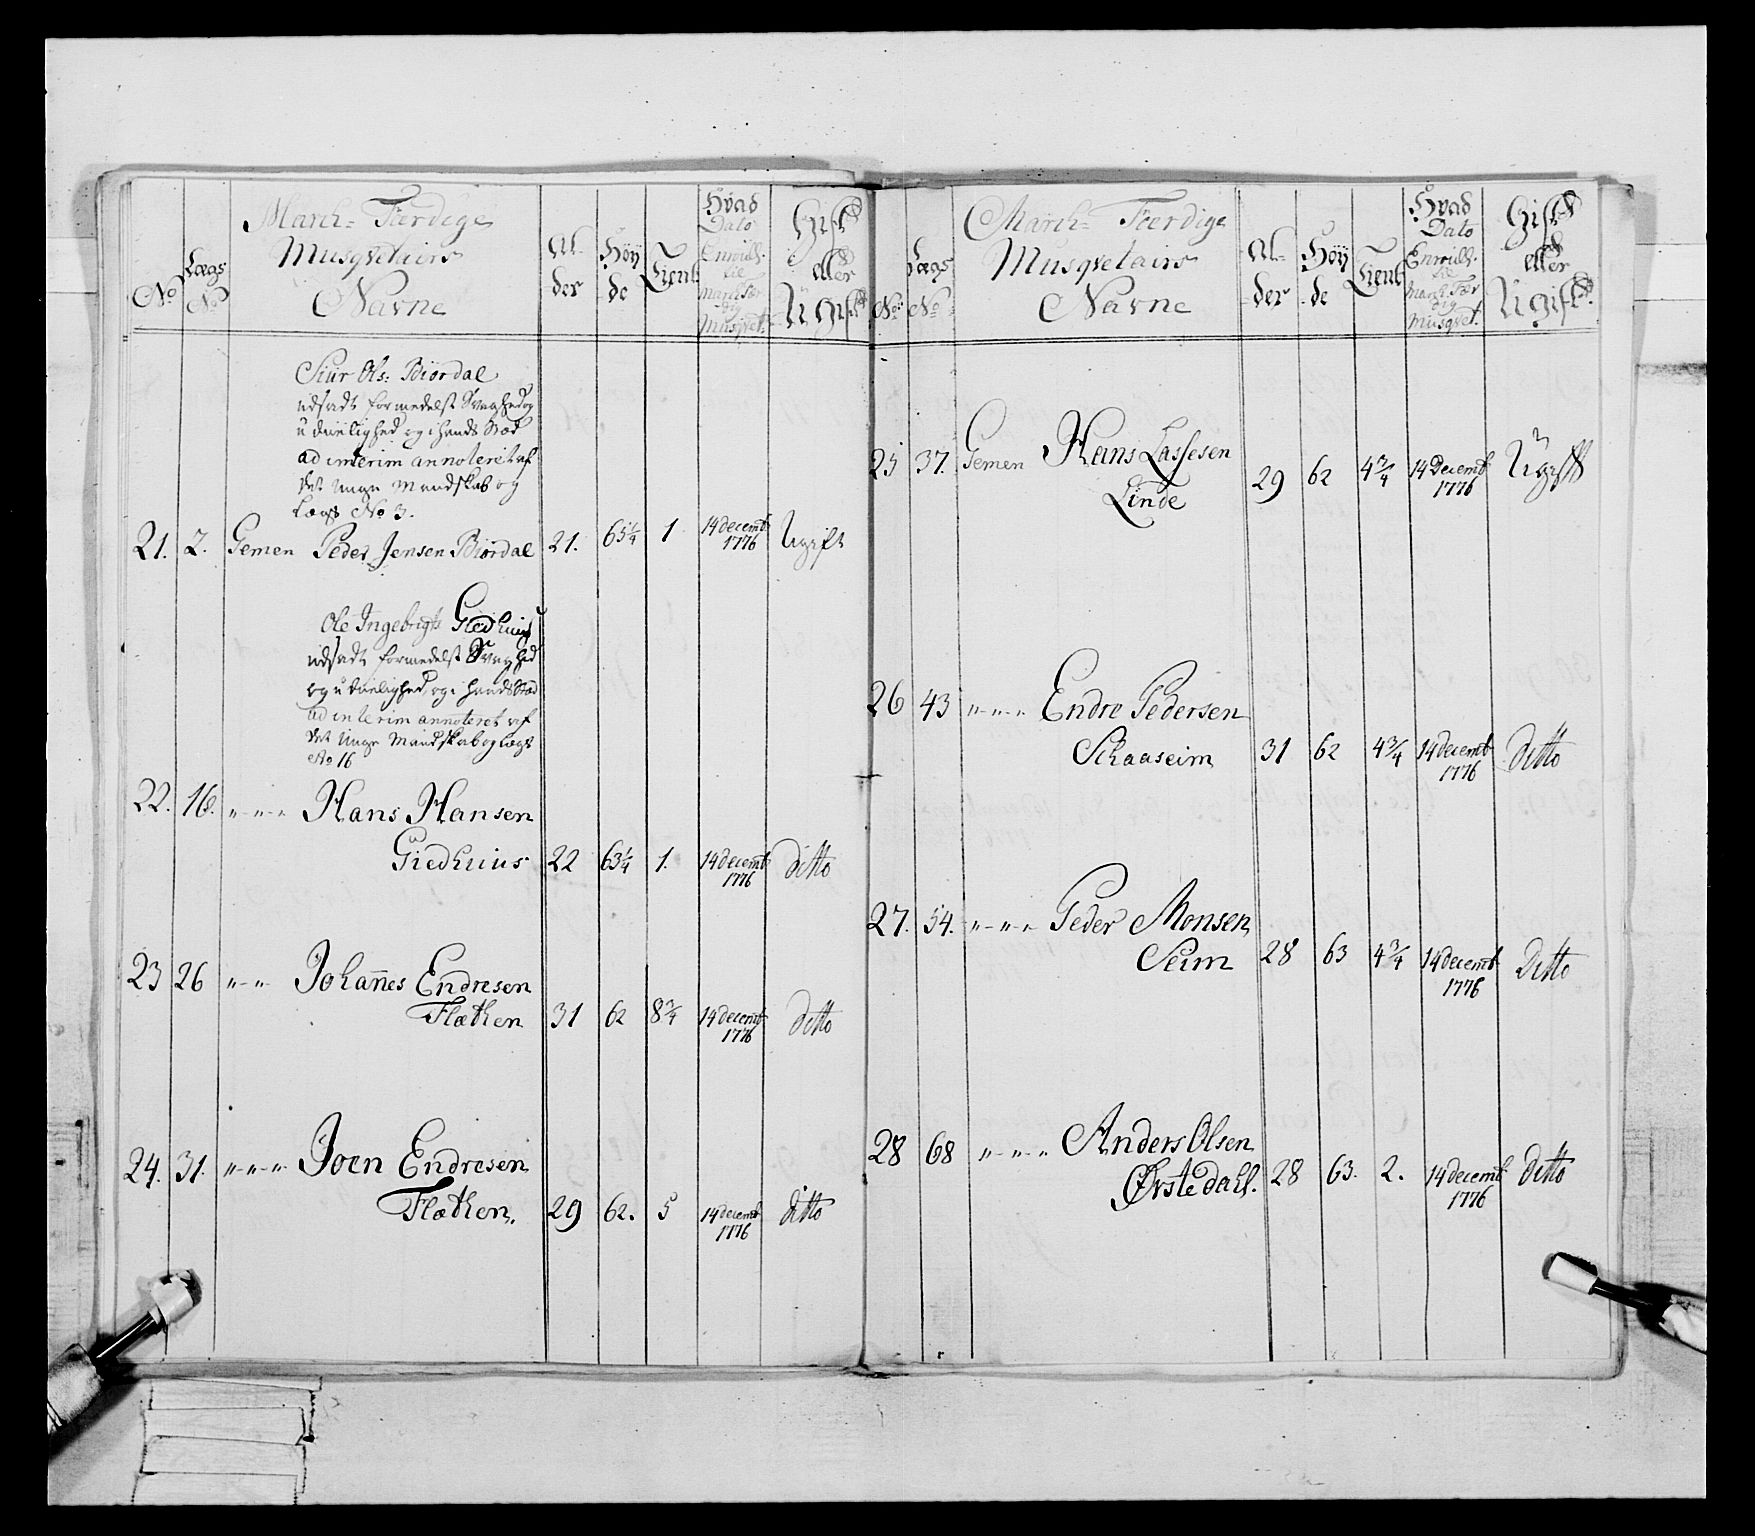 No
Lægs
No
March- Færdige
Musqvetairs
Navne
Al-
der
Høÿ
de
Tient
Hvad
Dato
Enroull.
til
March Fær
dig
Musqvet.
Gift
eller
Ugift
Siur Ols: Biørdal
udsadt formedelst Svaghed og
uduelighed og i hands Stæd
ad interim annoteret af
det Unge Mandskab og
Lægs No 3.
21. 2. Gemen Peder Jensen Biørdal 21. 65 1/4 1 14 decemb 1776 Ugift
Ole Ingebrigts Giedhuus
udsadt formedelst Svaghed
og uduelighed, og i hands Stæd
ad interim annoteret af
det Unge Mandskab og Lægs
No 16
22. 16. „-„-„ Hans Hansen
Giedhuus 22 63 1/4 1. 14 decemb 1776 ditto
23 26 „-„ Johan̄es Endresen
Flæthen 31 62 8 3/4 14 decemb 1776 ditto
24. 31. „-„-„ Joen Endresen
Flæthen. 29 62. 5 14 decemb 1776 ditto
No
Lægs
No
March- Færdige
Musqvetairs
Navne
Al-
der
Høÿ
de
Tient
Hvad
Dato
Enroull.
til
March Fær
dig
Musqvet.
Gift
eller
Ugift.
25 37. Gemen Hans Lassesen
Linde 29 62 4 3/4 14 decemb 1776 Ugift
26 43 „-„-„ Endre Pedersen
Schaaseim 31 62 4 3/4 14 decemb 1776 ditto
27. 54. „-„-„ Peder Monsen
Seim 28 63 4 3/4 14 decemb 1776 Ditto
28 68 „-„-„ Anders Olsen
Ørstedahl. 28 63. 2. 14 decemb 1776 ditto